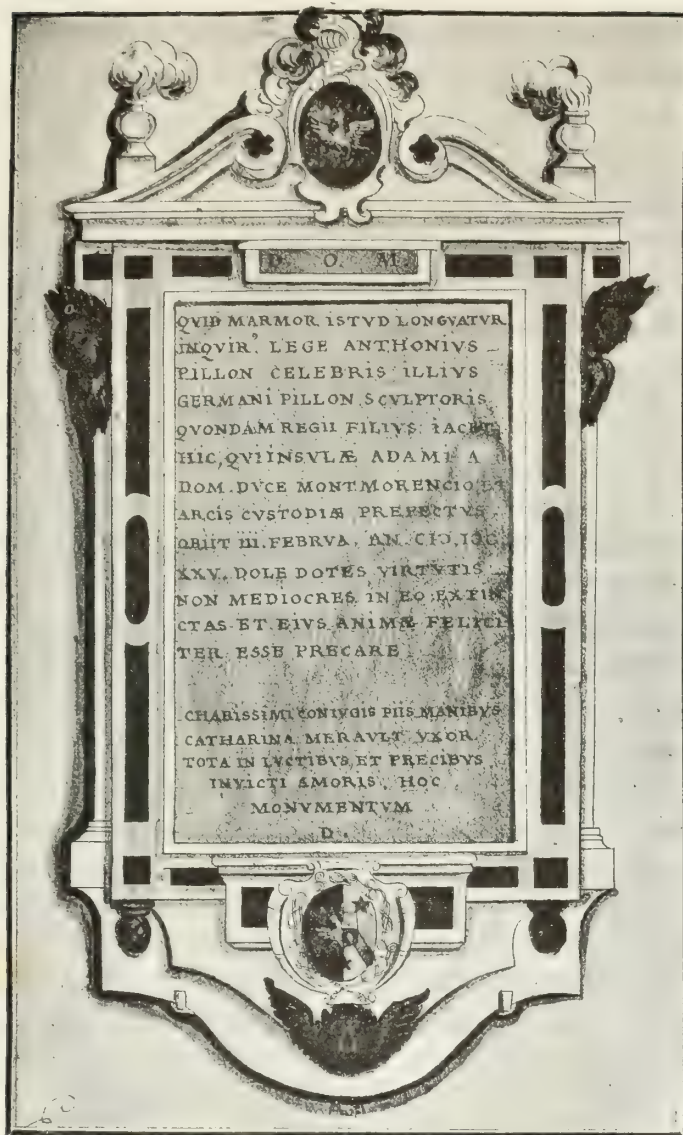 D. O. M.
QVID MARMOR ISTVD LONGVATVR
INQVIR⁹. LEGE ANTHONIVS
PILLON CELEBRIS ILLIVS
GERMANI PILLON SCVLPTORIS
QVONDAM REGII FILIVS IACET
HIC, QVI INSVLÆ ADAMI A
DOM. DVCE MONTMORENCIO, ET
ARCIS CVSTODIÆ PREFECTVS
OBIIT III. FEBRVA. AN. CIↃ.IↃC
XXV. DOLE DOTES VIRTVTIS
NON MEDIOCRES IN EO EXTIN
CTAS ET EIVS ANIMÆ FELICI
TER ESSE PRECARE
CHARISSIMI CONIVGIS PIIS MANIBVS
CATHARINA MERAVLT VXOR
TOTA IN LVCTIBVS, ET PRECIBVS
INVICTI AMORIS, HOC
MONVMENTVM
D.